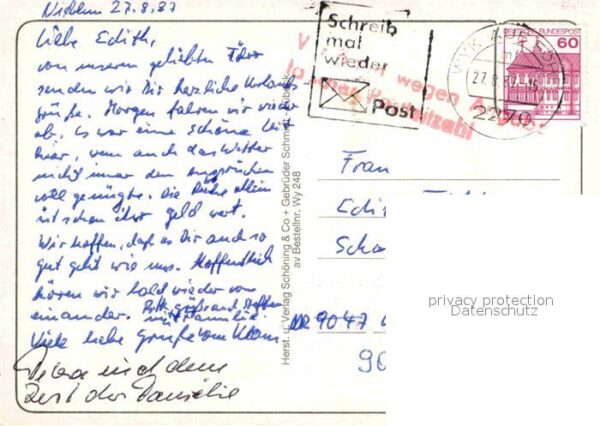 Nieblum 27.8.87
Liebe Edith,
von unserem geliebten Föhr
senden wir Dir herzliche Urlaubs
grüße. Morgen fahren wir wieder
ab. Es war eine schöne Zeit
hier, wenn auch das Wetter
nicht immer den Ansprüchen
voll genügte. Die Ruhe allein
ist schon ihr Geld wert.
Wir hoffen, daß es Dir auch so
gut geht wie uns. Hoffentlich
hören wir bald wieder von
einander.
Viele liebe Grüße von Klaus
und dem
Rest der Familie
Schreib
mal
wieder
Post
DEUTSCHE BUNDESPOST
60
WYK
27.8.87.15
2270
wegen
Herst. u. Verlag Schöning & Co + Gebrüder Schmidt - Lübeck
av Bestellnr. Wy 248
Frau
Edi
Scho
9047
96
privacy protection
Datenschutz